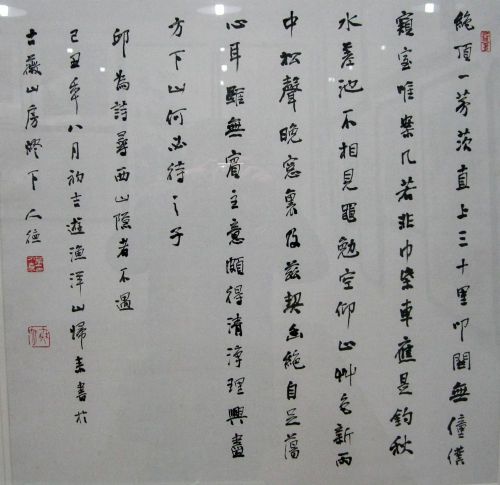 絕頂一茅茨直上三十里叩關無僮僕
窺室唯案几若非巾柴車應是釣秋
水差池不相見黽勉空仰止艸色新雨
中松聲晚窓裏及茲契幽絕自足蕩
心耳雖無賓主意頗得清淨理興盡
方下山何必待之子
邱為詩尋西山隱者不遇
己丑年八月初吉遊漁洋山歸來書於
古薇山房燈下人德